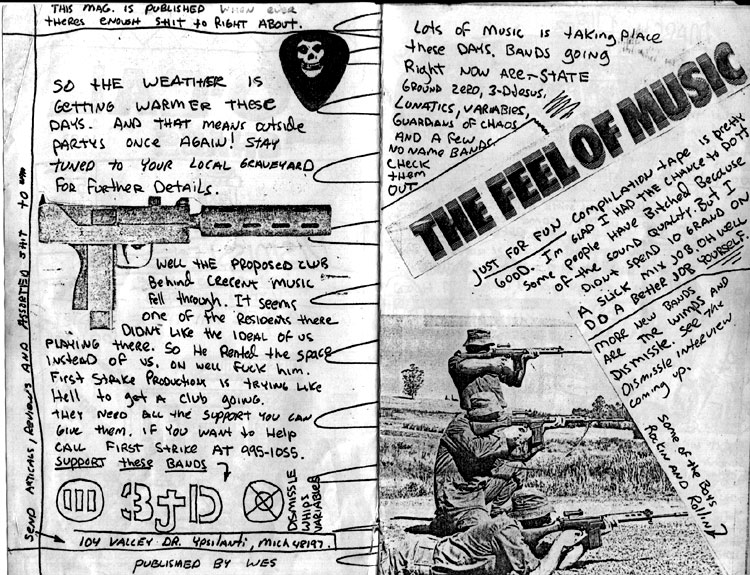 THIS MAG. IS PUBLISHED WHEN EVER
THERES ENOUGH SHIT to RIGHT ABOUT.
SO THE WEATHER IS
GETTING WARMER THESE
DAYS. AND THAT MEANS OUTSIDE
PARTYS ONCE AGAIN! STAY
TUNED TO YOUR LOCAL GRAVEYARD
FOR FURTHER DETAILS.
WELL THE PROPOSED CLUB
Behind CRECENT MUSIC
Fell through. It seems
one of the Residents there
DIDNT Like the IDEAL OF US
PLAYING THERE. SO He Rented the SPACE
INSTEAD OF US. OH WELL FUCK him.
First STRIKE PRODUCTIONS is TRYING Like
Hell to get A Club going.
they NEED ALL the SUPPORT YOU CAN
Give them. IF YOU WANT to Help
CALL FIRST STRIKE AT 995-1055.
SUPPORT these BANDS
3JD
DISMISSLE
WHIPS
VARIABLES
SEND ARTICALS, REVIEWS AND ASSORTED SHIT TO
104 VALLEY DR. YPSILANTI, MICH 48197.
PUBLISHED BY WES
Lots of Music is taking PlAce
these DAYS. BANDS going
Right NOW ARE-STATE
GROUND ZERO, 3-DJesus,
LUNATICS, VARIABLES,
GUARDIANS OF CHAOS
AND A FEW
NO NAME BANDS.
CHECK
them
OUT
THE FEEL OF MUSIC
JUST FOR FUN COMPILATION TAPE is pretty
GOOD. I'm GLAD I HAD THE CHANCE to DO IT.
Some people HAVE Bitched Because
of the SOUND QUALITY. But I
DIDNT SPEND 10 GRAND ON
A SLICK MIX JOB OH WELL
DO A Better JOB YOURSELF.
MORE NEW BANDS
ARE THE WIMPS AND
Dismissle. See The
Dismissle interview
coming up.
Some of the Boys
Rockin AND Rolling